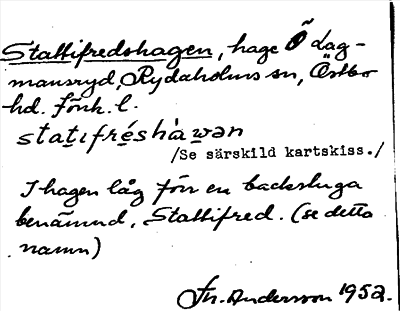 Stattifredshagen, hage Ö Lag-
mansryd, Rydaholms sn, Östbo
hd. Jönk. l.
statifréshàwən
/Se särskild kartskiss./
I hagen låg förr en backstuga
benämnd, Stattifred. (se detta
namn)
Fr. Andersson 1952.